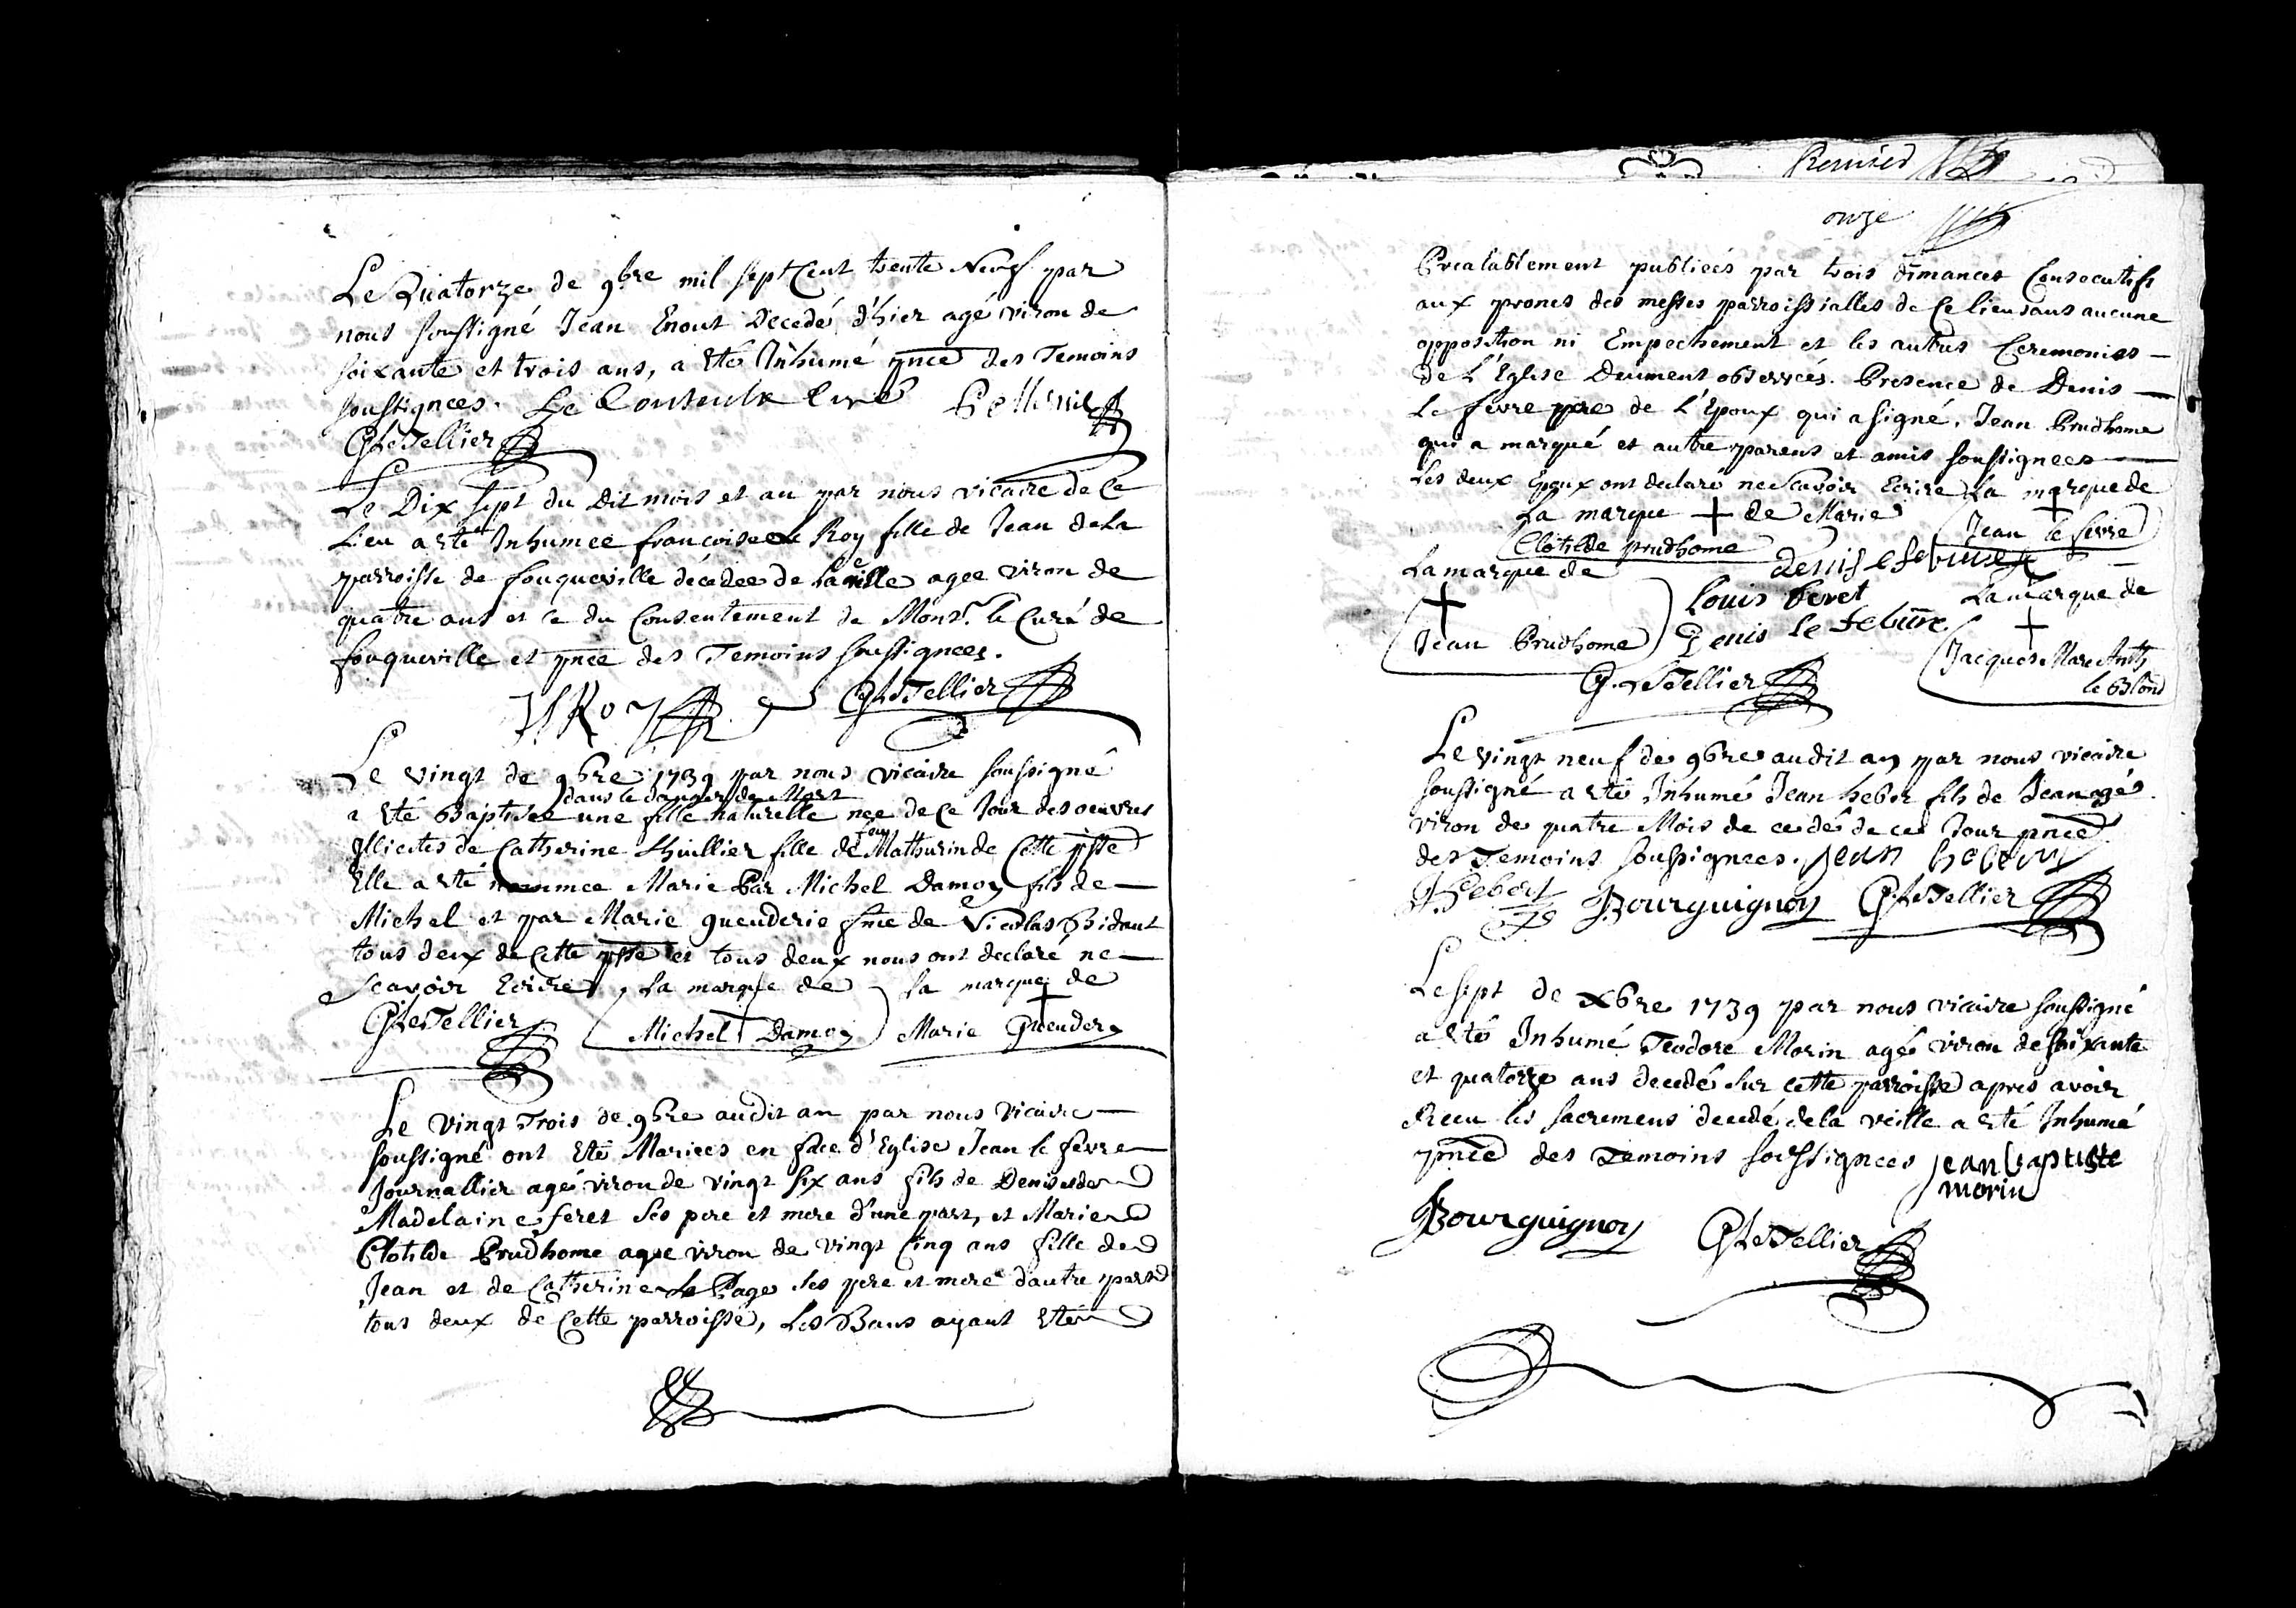 Le Quatorze de 9bre mil sept Cent trente Neuf par
nous soussigné Jean Enout Decedé d'hier agé viron de
soixante et trois ans, a eté Inhumé pnce des Temoins
soussignees. Le Couteulx Curé
G LeTellier
Le Dix sept du Dit mois et an par nous vicaire de Ce
Lieu a eté Inhumee francoise Le Roy fille de Jean de La
parroisse de fouqueville décédee de La veille agee viron de
quatre ans et ce du Consentement de Monsr. le Curé de
fouqueville et pnce des Temoins soussignees.
Roy G LeTellier
Le vingt de 9bre 1739 par nous vicaire soussigné
dans le danger de Mort
a eté Baptisee une fille naturelle nee de Ce Jour des oeuvres
feu
Illicites de Catherine Lhuillier fille de Mathurin de Cette psse
Elle a eté nommee Marie Par Michel Damoy fils de
Michel et par Marie guenderie fme de Nicolas Bidaut
tous deux de Cette psse et tous deux nous ont declaré ne
Scavoir Ecrire, La marque de La marque de
G LeTellier Michel Damoy Marie Guendery
Le vingt Trois de 9bre audit an par nous Vicaire
soussigné ont Eté Mariees en face d'Eglise Jean le fevre
Journallier agé viron de vingt six ans fils de Denis et de
Madelaine feret ses pere et mere d'une part, et Marie
Clotilde Prudhome agee viron de vingt Cinq ans fille de
Jean et de Catherine Le Page ses pere et mere d'autre part
tous deux de Cette parroisse, Les Bans ayant Eté
Premier
onze
Prealablement publieés par trois dimances Consecutifs
aux prones des messes parroissialles de Ce lieu sans aucune
opposition ni Empechement et les autres Ceremonies
de L'Eglise Deument observées. Presence de Denis
Le fevre pere de L'Epoux qui a signé, Jean Prudhome
qui a marqué et autre parens et amis soussignees
Les deux Epoux ont declaré ne Scavoir Ecrire La marque de
La marque + de Marie Jean le fevre
Clotilde prudhome denis lefebvre
La marque de Louis feret La marque de
Jean Prudhome Denis le febure Jacques Marc Anth
G. LeTellier le Blond
Le vingt neuf de 9bre audit an par nous vicaire
soussigné a eté Inhumé Jean heber fils de Jean agé
viron de quatre Mois decedé de ce Jour pnce
des Temoins soussignees. Jean
hebert Bourguignon G LeTellier
Le sept de Xbre 1739 par nous vicaire soussigné
a eté Inhumé Teodore Morin agé viron de soixante
et quatorze ans decedé sur cette parroisse apres avoir
Receu les sacremens decedé de la veille a eté Inhumé
pnce des Temoins soussignees jean baptiste
morin
Bourguignon G LeTellier